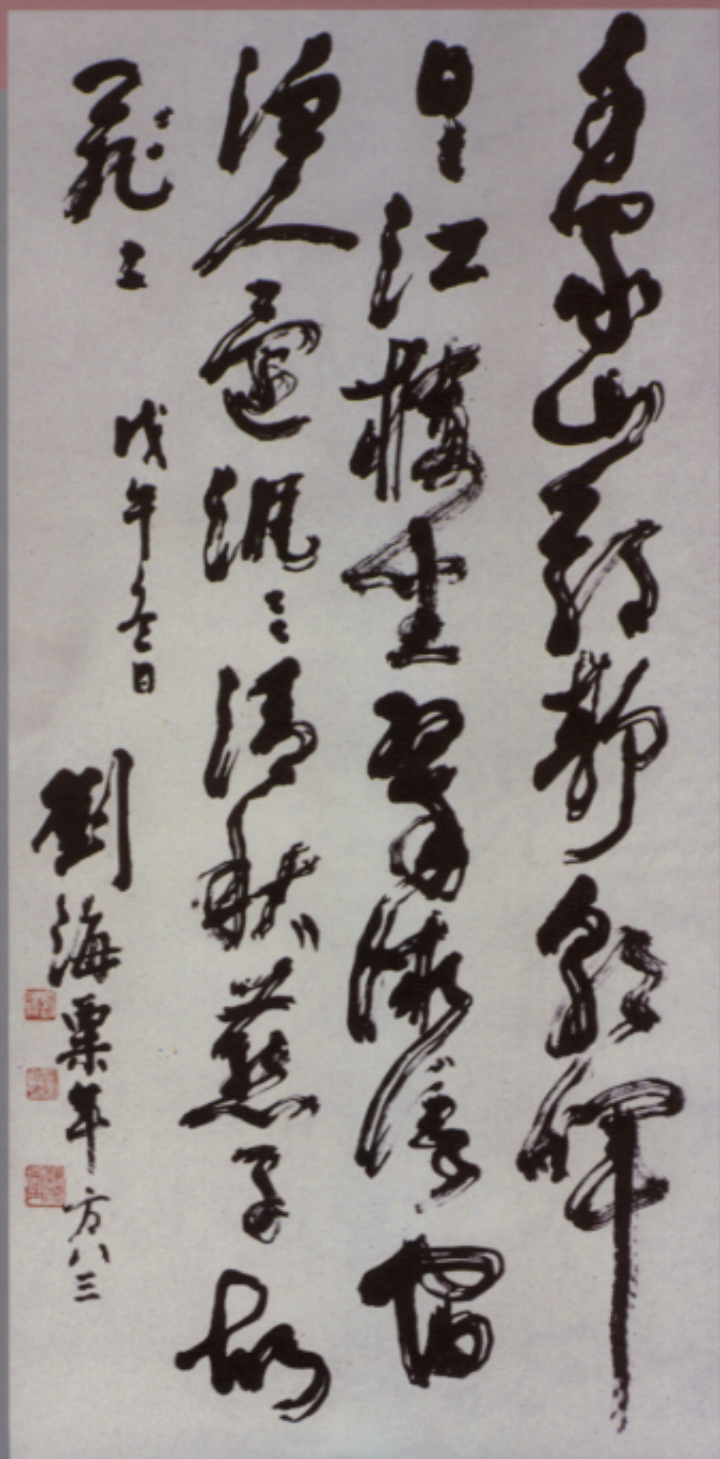 千家山郭靜朝暉
日〻江樓坐翠微信宿
漁人還汎〻清秋燕子故
飛〻
戊午冬日
劉海粟年方八三